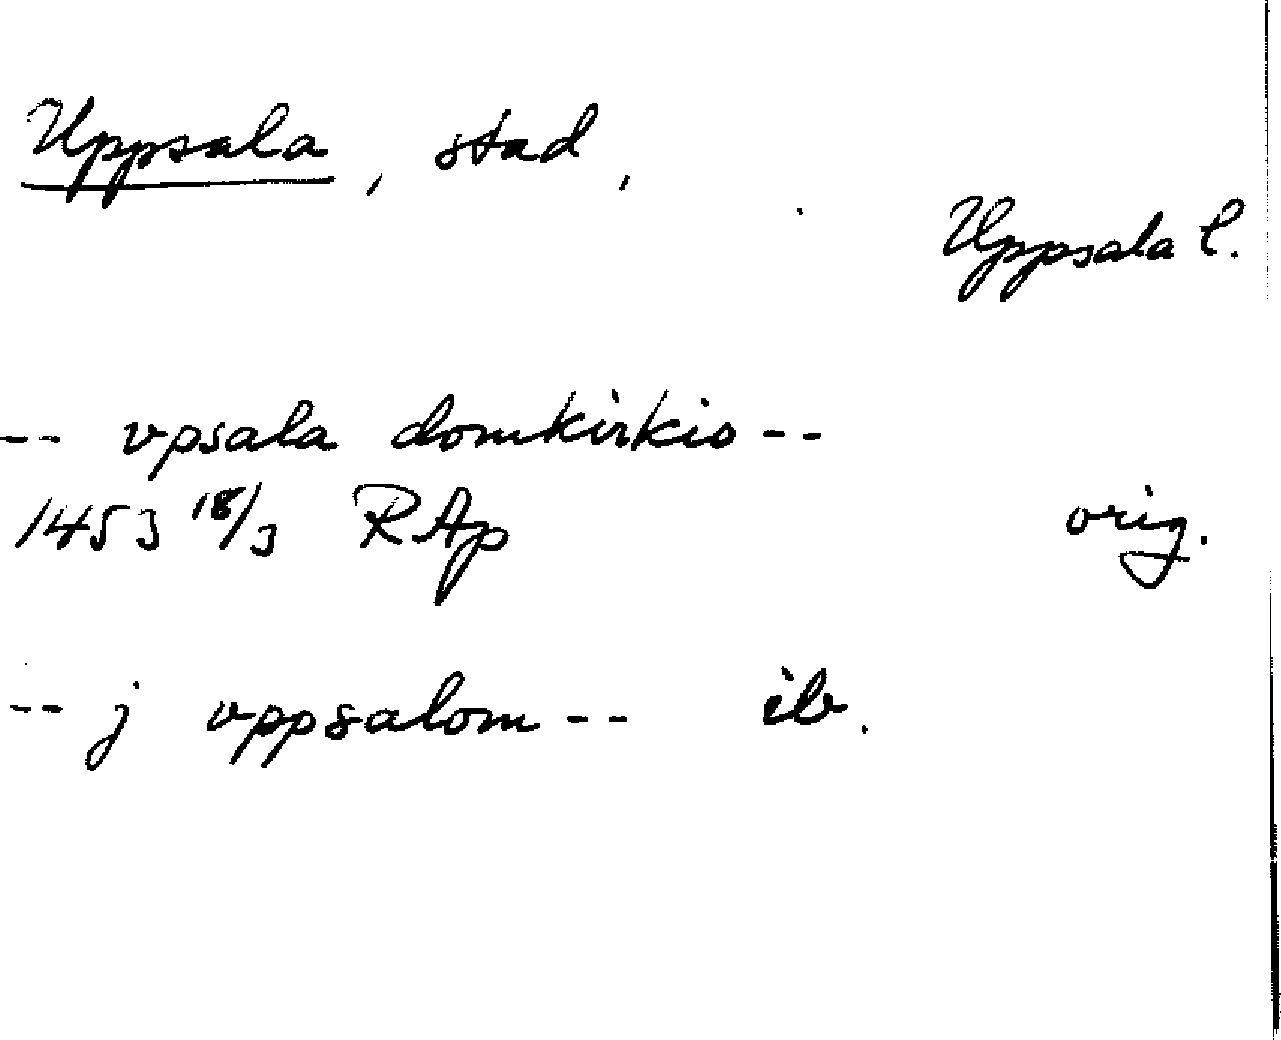 Uppsala, stad,
Uppsala l.
-- vpsala domkirkio --
1453 18/3 RAp orig.
-- j vppsalom -- ib.